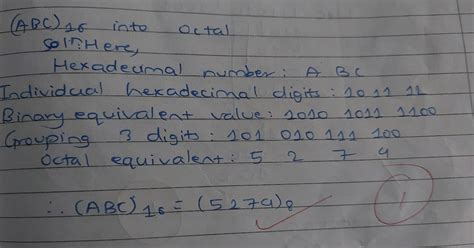 (ABC)16 into Octal
Solⁿ: Here,
Hexadecimal number: A B C
Individual hexadecimal digits: 10 11 12
Binary equivalent value: 1010 1011 1100
Grouping 3 digits: 101 010 111 100
Octal equivalent: 5 2 7 4
∴ (ABC)16 = (5274)8
1